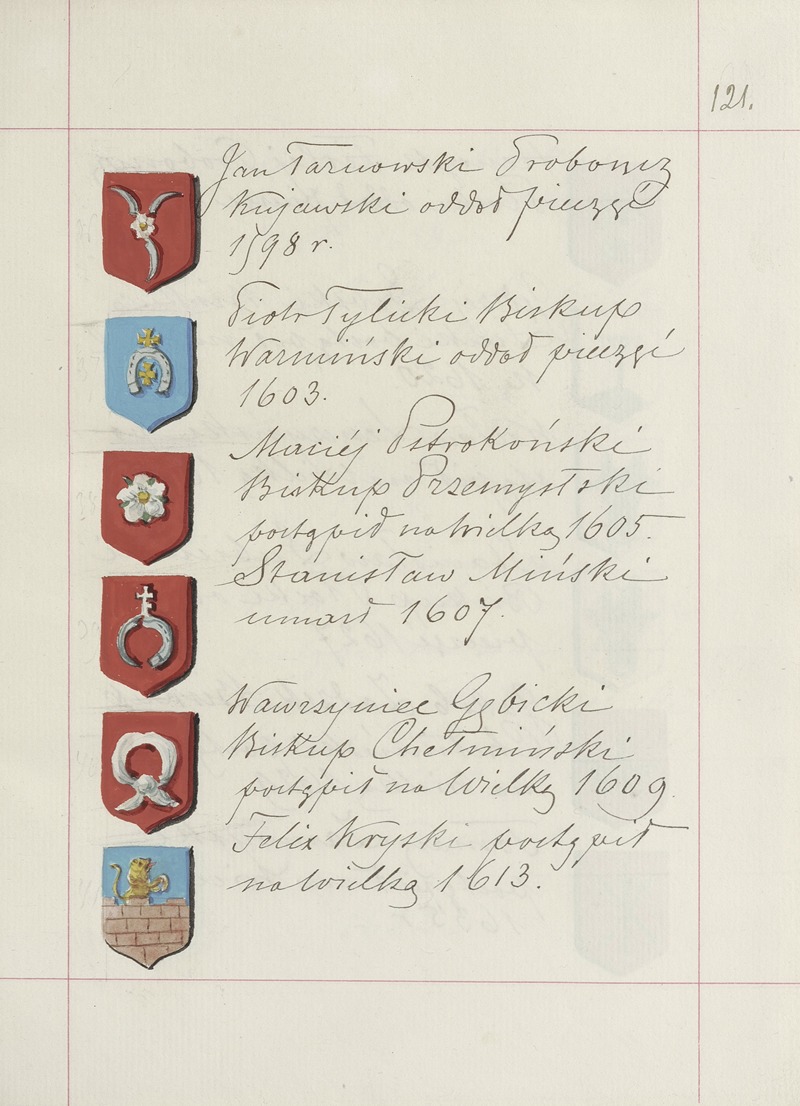 121.
Jan Tarnowski Proboszcz
Kujawski oddał pieczęć
1598 r.
Piotr Tylicki Biskup
Warmiński oddał pieczęć
1603.
Maciéj Pstrokoński
Biskup Przemyslski
postąpił na Wielką 1605.
Stanisław Miński
umarł 1607.
Wawrzyniec Gębicki
Biskup Chełmiński
postąpił na Wielką 1609.
Felix Kryski postąpił
na Wielką 1613.